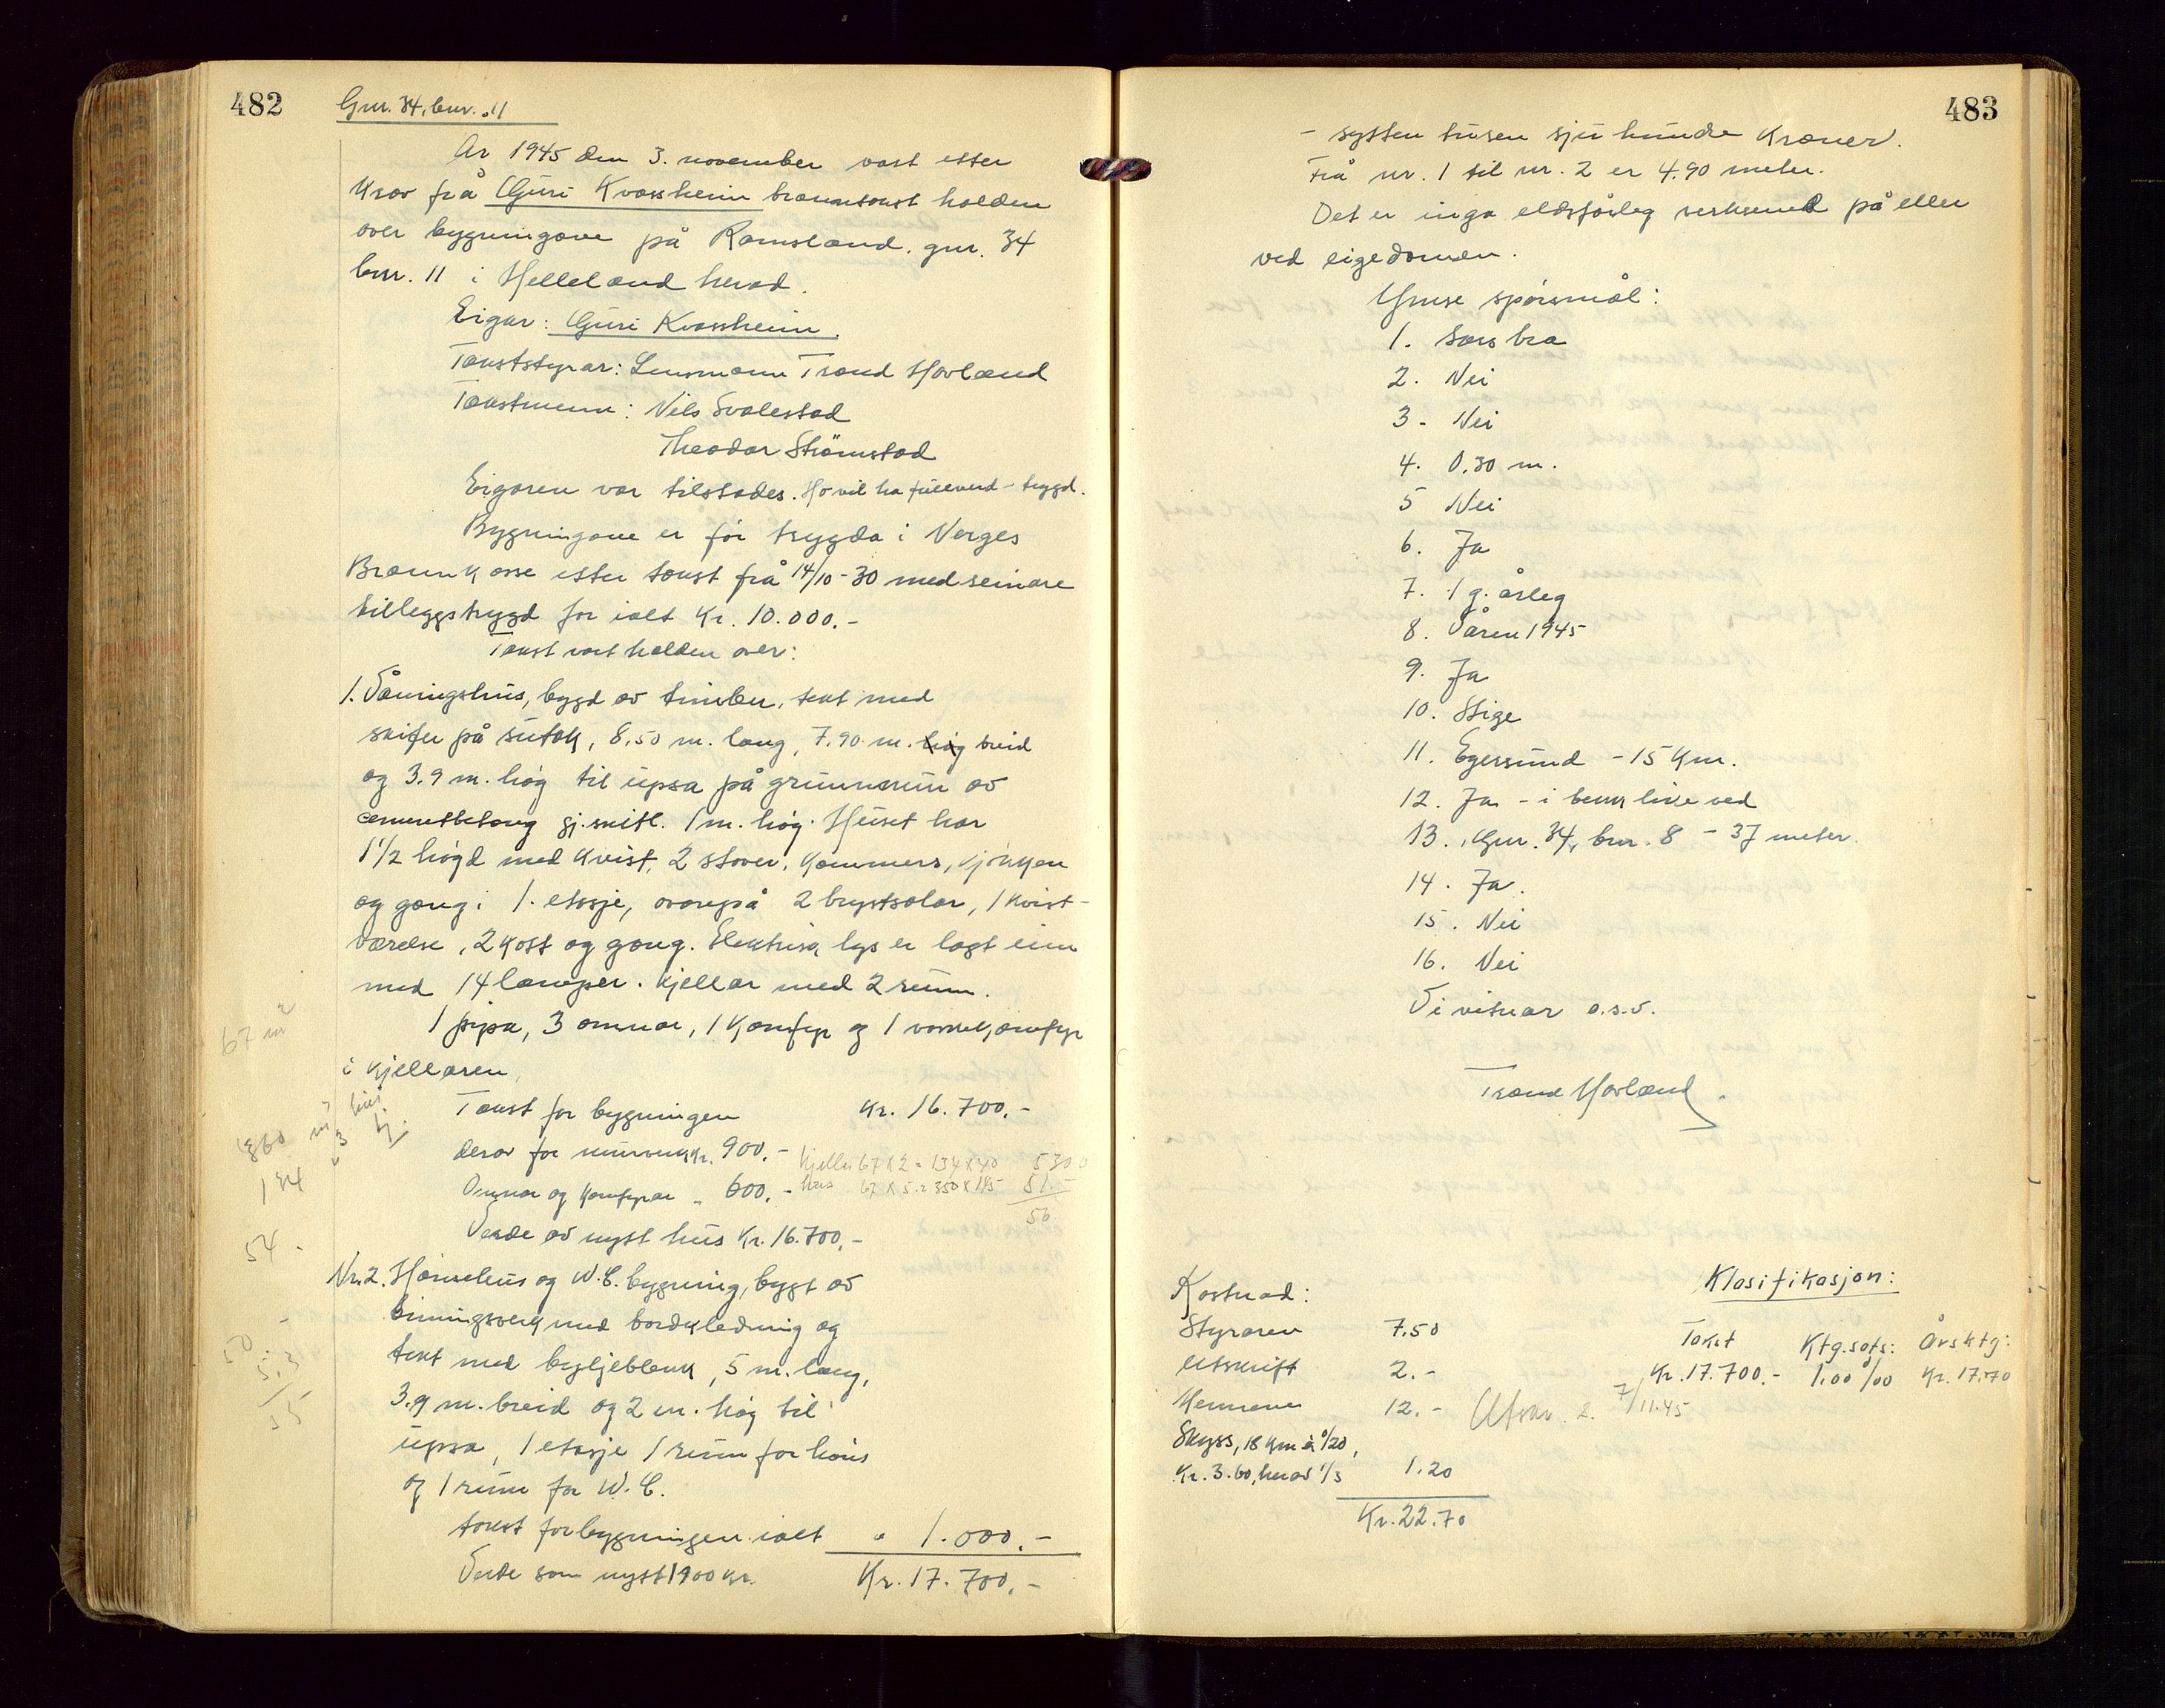 482
Gnr. 34, bnr. 11
År 1945 den 3. november vart etter
krav frå Guri Kvassheim branntakst halden
over bygningane på Ramsland, gnr. 34
bnr. 11 i Helleland herad.
Eigar: Guri Kvassheim.
Takststyrar: Lensmann Trond Hovland
Takstmenn: Nils Svalestad
Theodor Strømstad
Eigaren var tilstades. Ho vil ha fullverd-trygd.
Bygningane er før trygda i Norges
Brannkasse etter takst frå 14/10-30 med seinare
tilleggstrygd for ialt kr. 10.000.-
Takst vart halden over:
1. Våningshus, bygd av timber, tekt med
skifer på sutak, 8,50 m. lang, 7.90 m. høg breid
og 3.9 m. høg til upsa på grunnmur av
cementbetong gj.snitl. 1 m. høg. Huset har
1 1/2 høgd med kvist, 2 stover, kammers, kjøkken
og gang i 1. etasje, ovanpå 2 brystsalar, 1 kvist-
værelse, 2 kott og gang. Elektrisk lys er lagt inn
med 14 lamper. Kjellar med 2 rum.
1 pipa, 3 omnar, 1 komfyr og 1 vaskekomfyr
i kjellaren.
67 m2
Takst for bygningen kr. 16.700.-
derav for murverk kr. 900.-
Kjeller 67 x 2 = 134 x 40 530
Omnar og komfyrar " 600.-
hus 67 x 5.2 350 x 145 51.-
56
Verde av nytt hus kr. 16.700.-
134
54 -
50 -
5.3
55
Nr. 2. Hønsehus og W.C. bygning, bygt av
binningsverk med bordkledning og
tekt med bylgjeblekk, 5 m. lang,
3.9 m. breid og 2 m. høg til
upsa, 1 etasje 1 rum for høns
og 1 rum for W.C.
takst for bygningen ialt " 1.000.-
Verde som nytt 1900 kr. Kr. 17.700.-
483
- sytten tusen sju hundre kroner.
Frå nr. 1 til nr. 2 er 4.90 meter.
Det er inga eldsfårleg verksemd på eller
ved eigedomen.
Ymse spørsmål:
1. Sers bra
2. Nei
3 - Nei
4. 0,30 m.
5 Nei
6. Ja
7. 1 g. årleg
8. Våren 1945
9. Ja
10. Stige
11. Egersund - 15 km.
12. Ja - i bekk like ved
13. Gnr. 34, bnr. 8 - 37 meter.
14. Ja.
15. Nei
16. Nei
Vi vitnar o.s.v.
Trond Hovland.
Kostnad:
Styraren 7.50
Utskrift 2.-
Mennene 12.-
Skyss, 18 km à 0/20,
kr. 3.60, herav 1/3 1.20
Kr. 22.70
Utskr. 2. 7/11.45
Klasifikasjon:
Takst Ktg.sats: Årsktg:
Kr. 17.700.- 1.00 o/oo Kr. 17.70